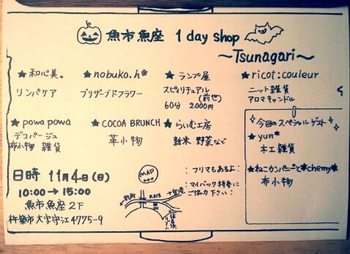 魚市魚座 1 day shop
〜Tsunagari〜
★和心美。
リンパケア
★nobuko.h*
プリザーブドフラワー
★ランプ屋
スピリチュアル
60分 2,000円
★ricot:couleur
ニット雑貨
アロマキャンドル
★powa powa
デコパージュ
布小物 雑貨
★COCOA BRUNCH
革小物
★らいむ工房
苗木 野菜など
今回のスペシャルゲスト
★yun*
木工雑貨
★ねこカンパニーと*chemy*
布小物
日時 11月4日(日)
10:00→15:00
魚市魚座 2F
杵築市大字守江4775-9
MAP
・フリマもあるよ!
・マイバック持参に
ご協力下さい!